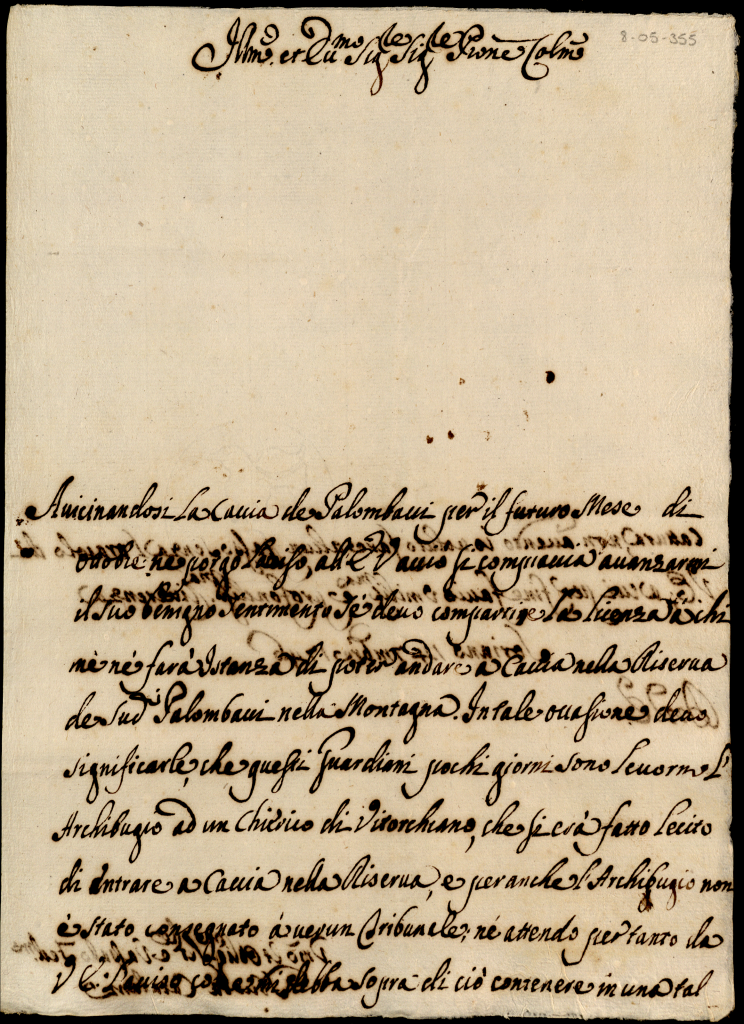 8-05-355
Illmo. et Rmo Sigre Sigre Prone Colmo
Avicinandosi La Caccia de Palombacci per il futuro Mese di
ottobre, ne porgo l'aviso, all' E V accio si compiaccia avanzarmi
il suo benigno sentimento se devo compartire La Licenza a chi
me ne farà Istanza di poter andare a Caccia nella Riserva
de Sudi Palombacci nella Montagna. In tale occasione devo
significarle, che questi Guardiani pochi giorni sono levorno l'
Archibugio ad un Chierico di Vitorchiano, che si era fatto lecito
di entrare a Caccia nella Riserva, e per anche l'Archibugio non
è stato consegnato à verun Tribunale; ne attendo per tanto da
V E: l'aviso come mi debba sopra di ciò contenere in una tal